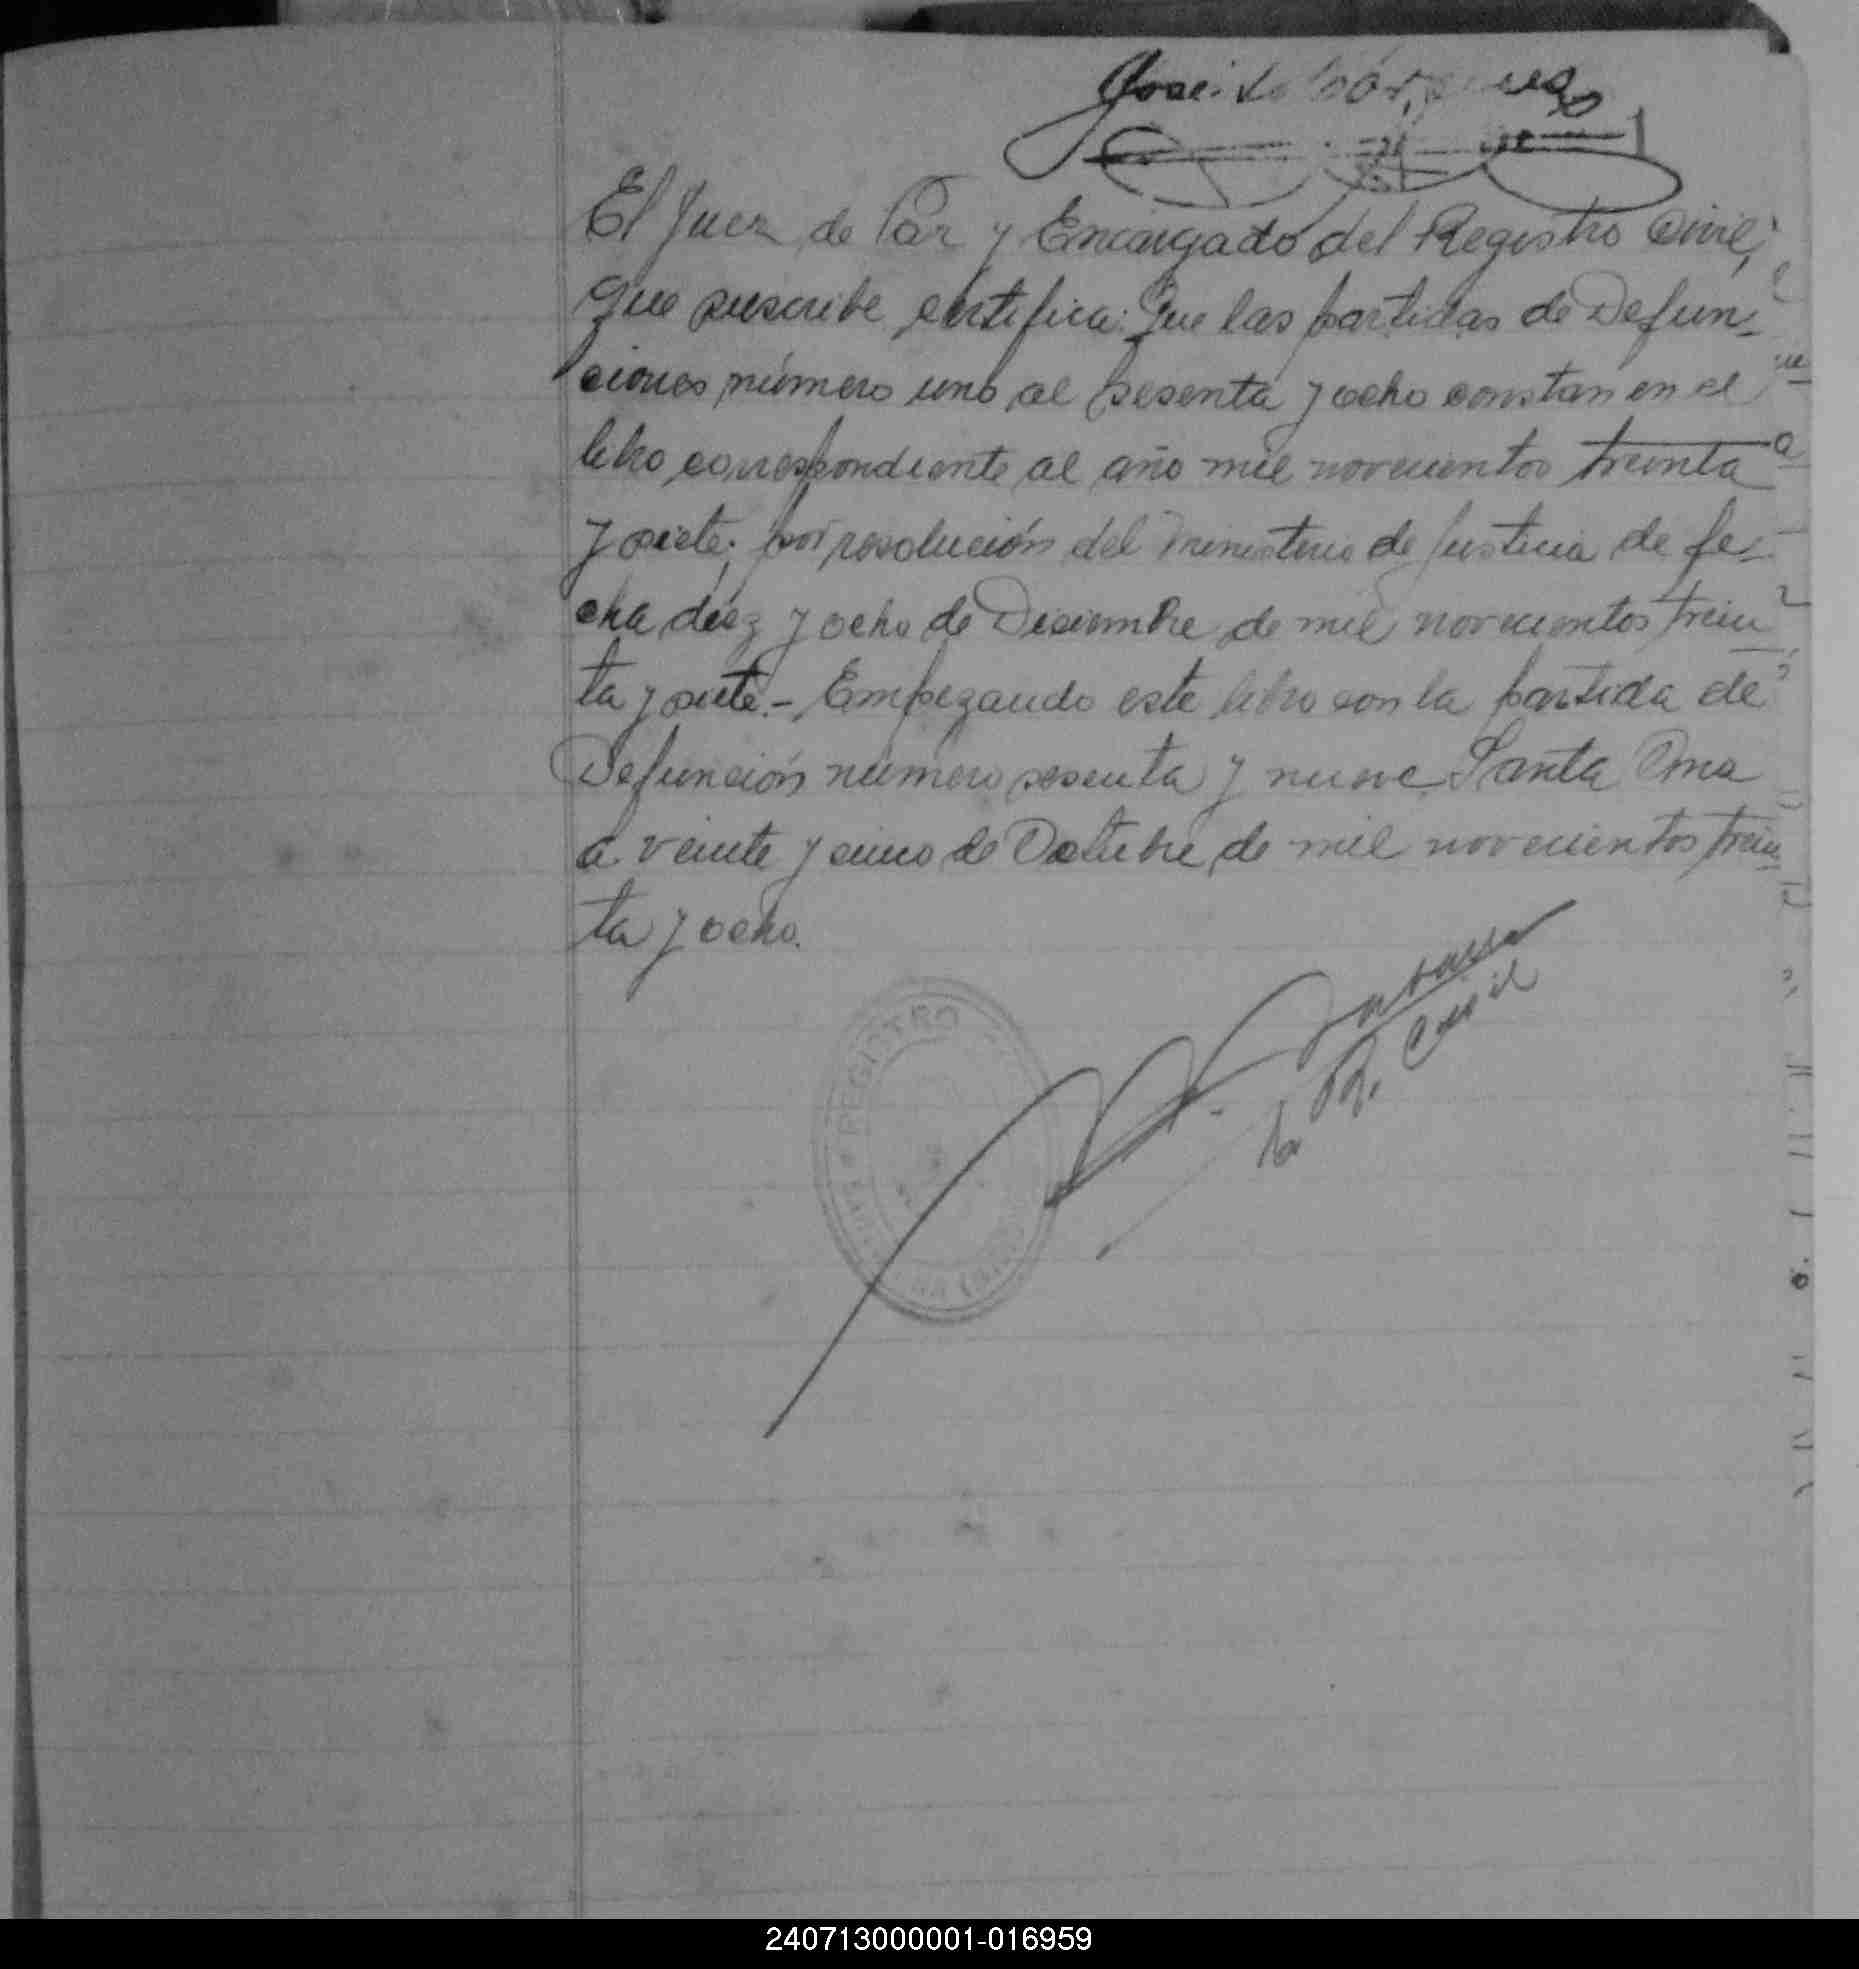 José
El Juez de Paz y Encargado del Registro Civil,
que suscribe certifica: Que las partidas de Defun-
ciones número uno al sesenta y ocho constan en el
libro correspondiente al año mil novecientos treinta
y siete; por resolución del Ministerio de Justicia de fe-
cha diez y ocho de Diciembre de mil novecientos trein
ta y siete.- Empezando este libro con la partida de
Defunción número sesenta y nueve Santa Ana
a veinte y cinco de Octubre de mil novecientos trein
ta y ocho.
REGISTRO
R. Civil
240713000001-016959